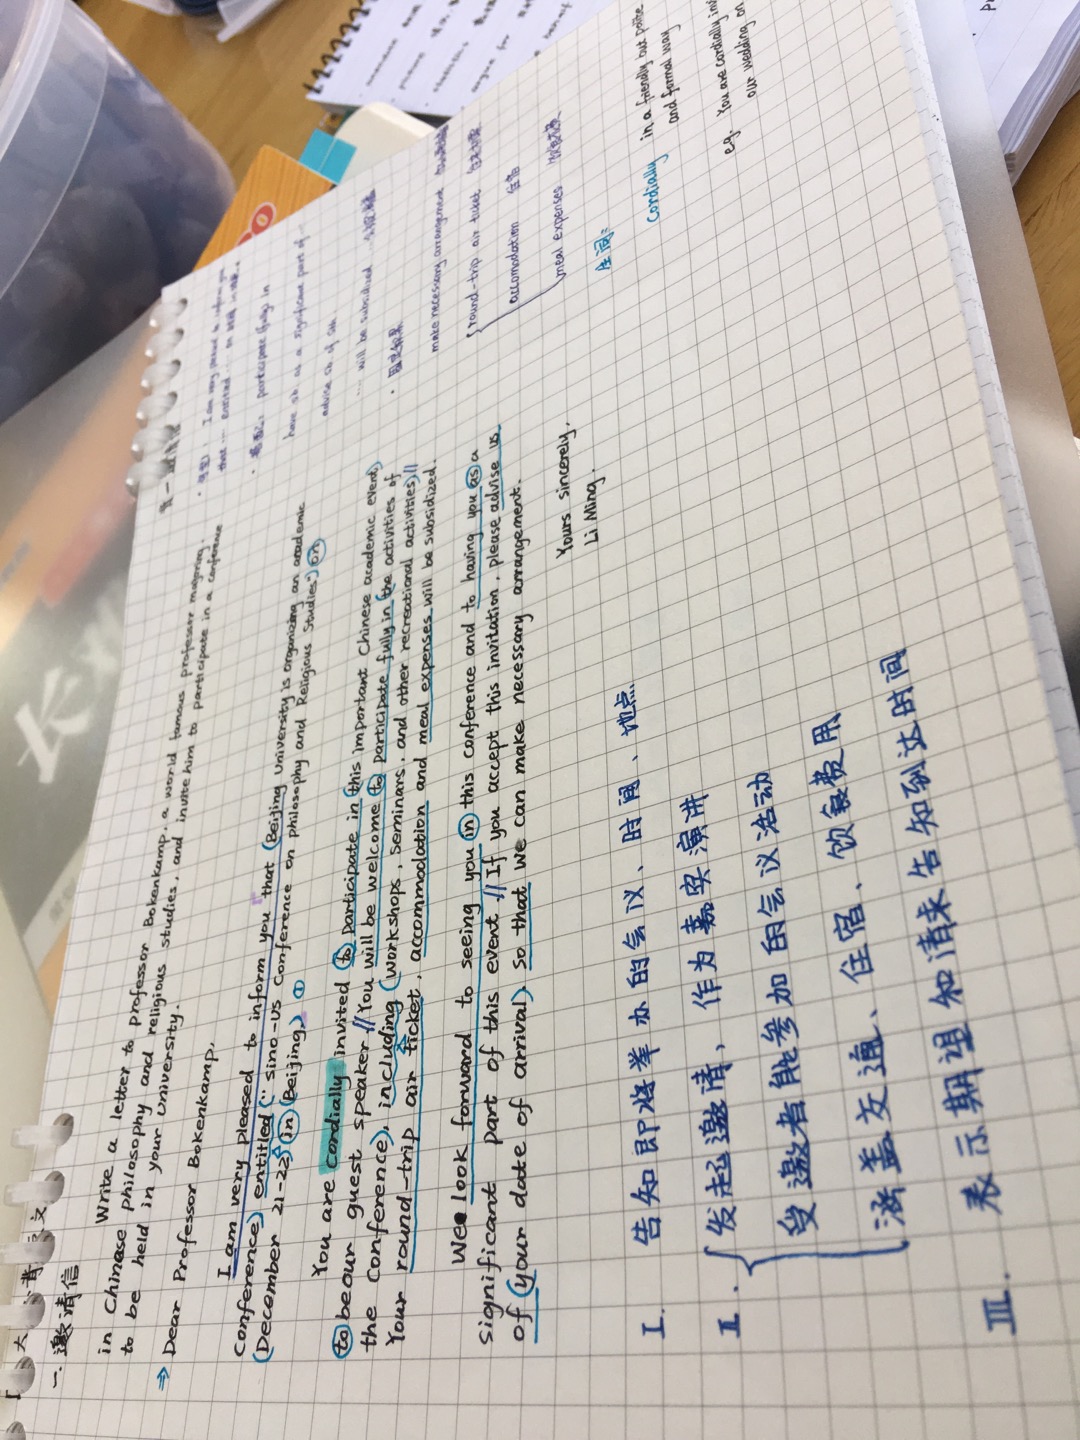 一. 邀请信
Write a letter to Professor Bokenkamp, a world famous professor majoring
in Chinese philosophy and religious studies, and invite him to participate in a conference
to be held in your University.
⇒ Dear Professor Bokenkamp,
I am very pleased to inform you that (Beijing University is organizing an academic
conference) entitled (“sino-US Conference on philosophy and Religious Studies”) on
(December 21-22) in (Beijing.) ①
You are cordially invited to participate in this important Chinese academic event,
to be our guest speaker // You will be welcome to participate fully in the activities of
the Conference), including (workshops, seminars, and other recreational activities) //
Your round-trip air ticket, accommodation and meal expenses will be subsidized.
We look forward to seeing you in this conference and to having you as a
significant part of this event // If you accept this invitation, please advise us
of (your date of arrival) so that we can make necessary arrangement.
Yours sincerely,
Li Ming.
I. 告知即将举办的会议、时间、地点.
II. 发起邀请，作为嘉宾演讲
受邀者能参加的会议活动
涵盖交通、住宿、饮食费用
III. 表示期望和请求告知到达时间
I am very pleased to inform you
that … entitled … on … in …
participate (fully) in
have sb. as a significant part of …
advise sb. of sth.
… will be subsidized
make necessary arrangement
round-trip air ticket
accomodation 住宿
meal expenses
生词:
cordially in a friendly but polite
and formal way
eg. You are cordially
our wedding on